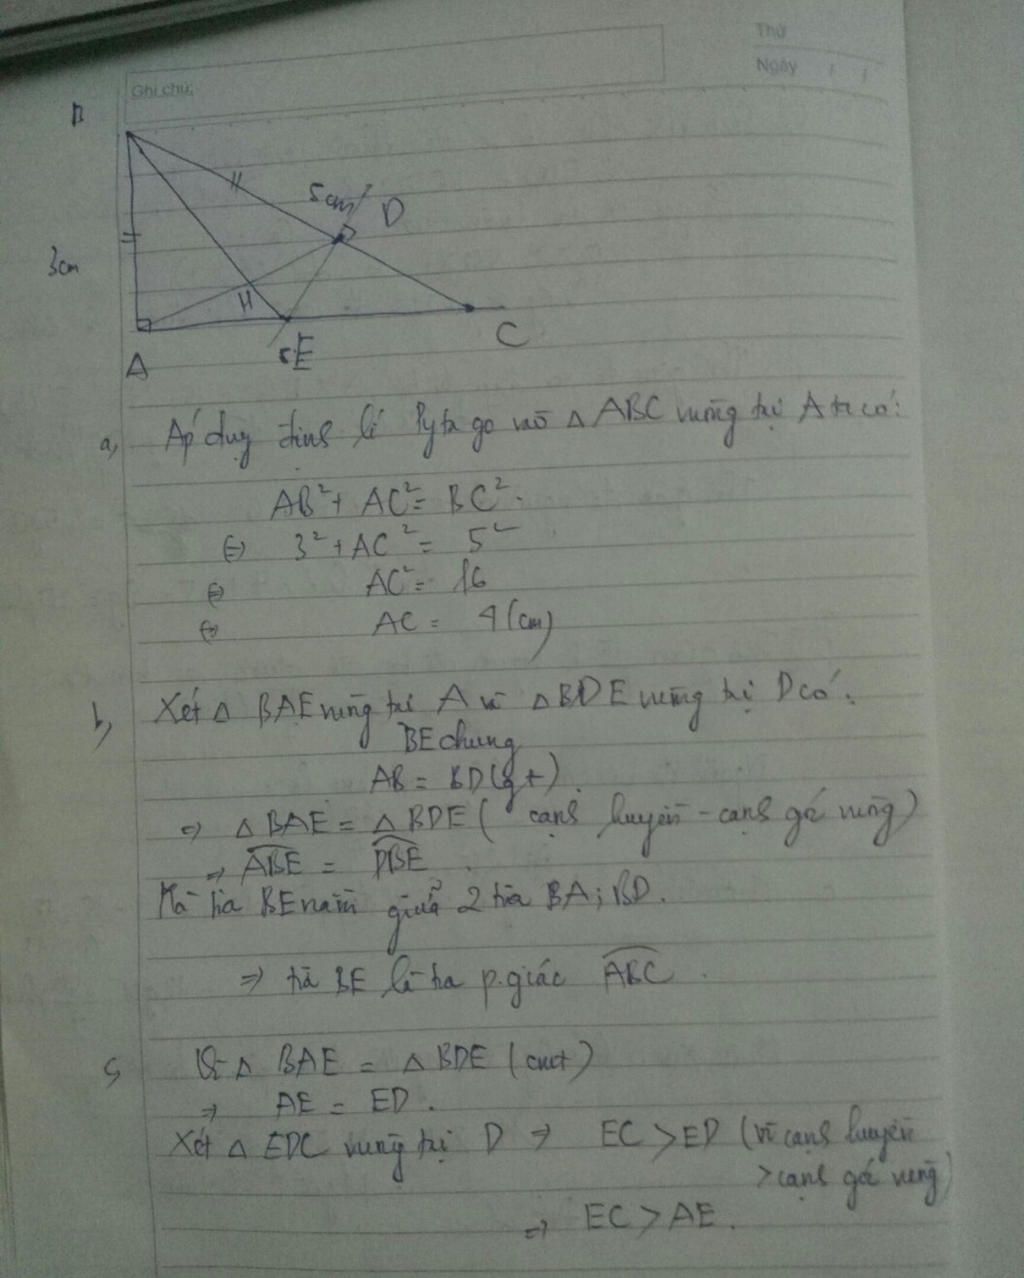 Thứ
Ngày / /
Ghi chú:
B
5cm
D
3cm
H
A
E
C
a, Áp dụng định lí Pytago vào △ ABC vuông tại A ta có:
AB² + AC² = BC².
⇔ 3² + AC² = 5²
⇔ AC² = 16
⇔ AC = 4 (cm)
b, Xét △ BAE vuông tại A và △ BDE vuông tại D có:
BE chung
AB = BD (gt)
⇒ △ BAE = △ BDE ( cạnh huyền - cạnh góc vuông)
⇒ ABE = DBE
Mà tia BE nằm giữa 2 tia BA; BD.
⇒ tia BE là tia p.giác ABC.
c, Vì △ BAE = △ BDE (cmt)
⇒ AE = ED.
Xét △ EDC vuông tại D ⇒ EC > ED (vì cạnh huyền
> cạnh góc vuông)
⇒ EC > AE.